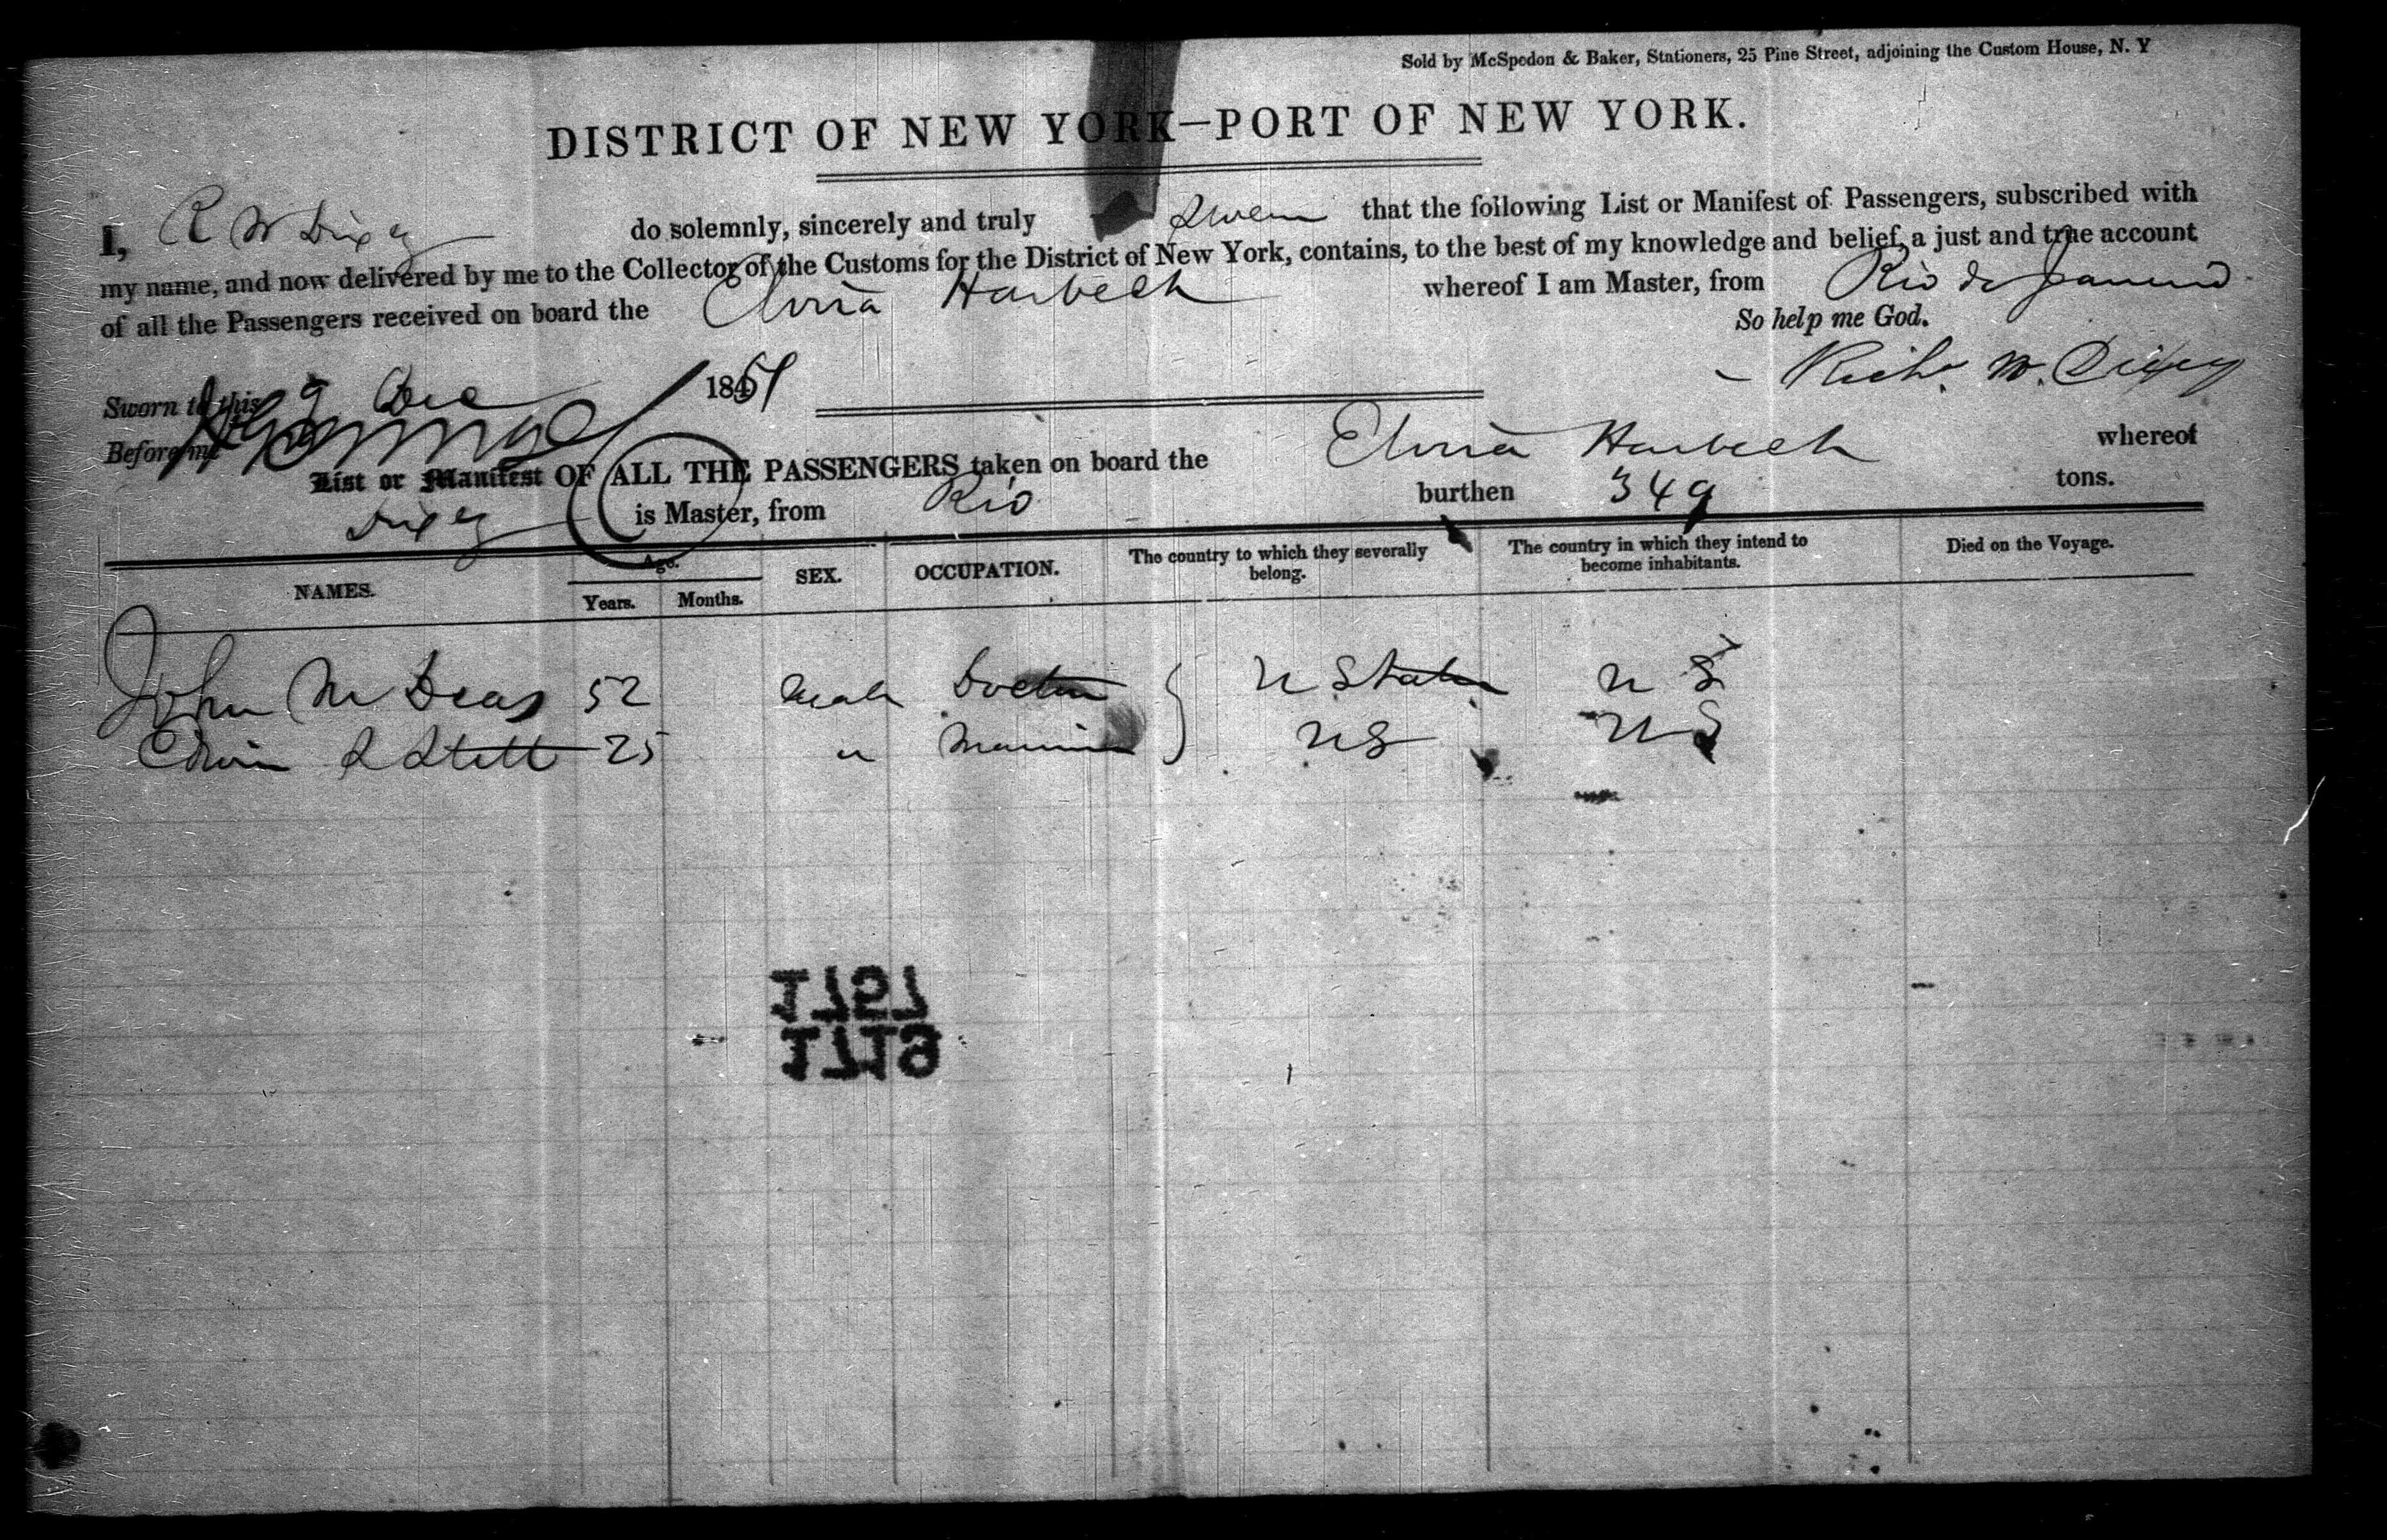 Sold by McSpedon & Baker, Stationers, 25 Pine Street, adjoining the Custom House, N. Y
DISTRICT OF NEW YORK—PORT OF NEW YORK.
I, R W Dixey do solemnly, sincerely and truly swear that the following List or Manifest of Passengers, subscribed with
my name, and now delivered by me to the Collector of the Customs for the District of New York, contains, to the best of my knowledge and belief, a just and true account
of all the Passengers received on board the Elvira Harbeck whereof I am Master, from Rio de Janeiro
So help me God.
Sworn to this 9 Dec 1851
Richd. W. Dixey
Before me
List or Manifest OF ALL THE PASSENGERS taken on board the Elvira Harbeck whereof
Dixey is Master, from Rio burthen 349 tons.
NAMES. Age. Years. Months. SEX. OCCUPATION. The country to which they severally belong. The country in which they intend to become inhabitants. Died on the Voyage.
John M Deas 52 Male Doctor U States U S
Edwin S Stett 25 " Mariner US US
1757
1719